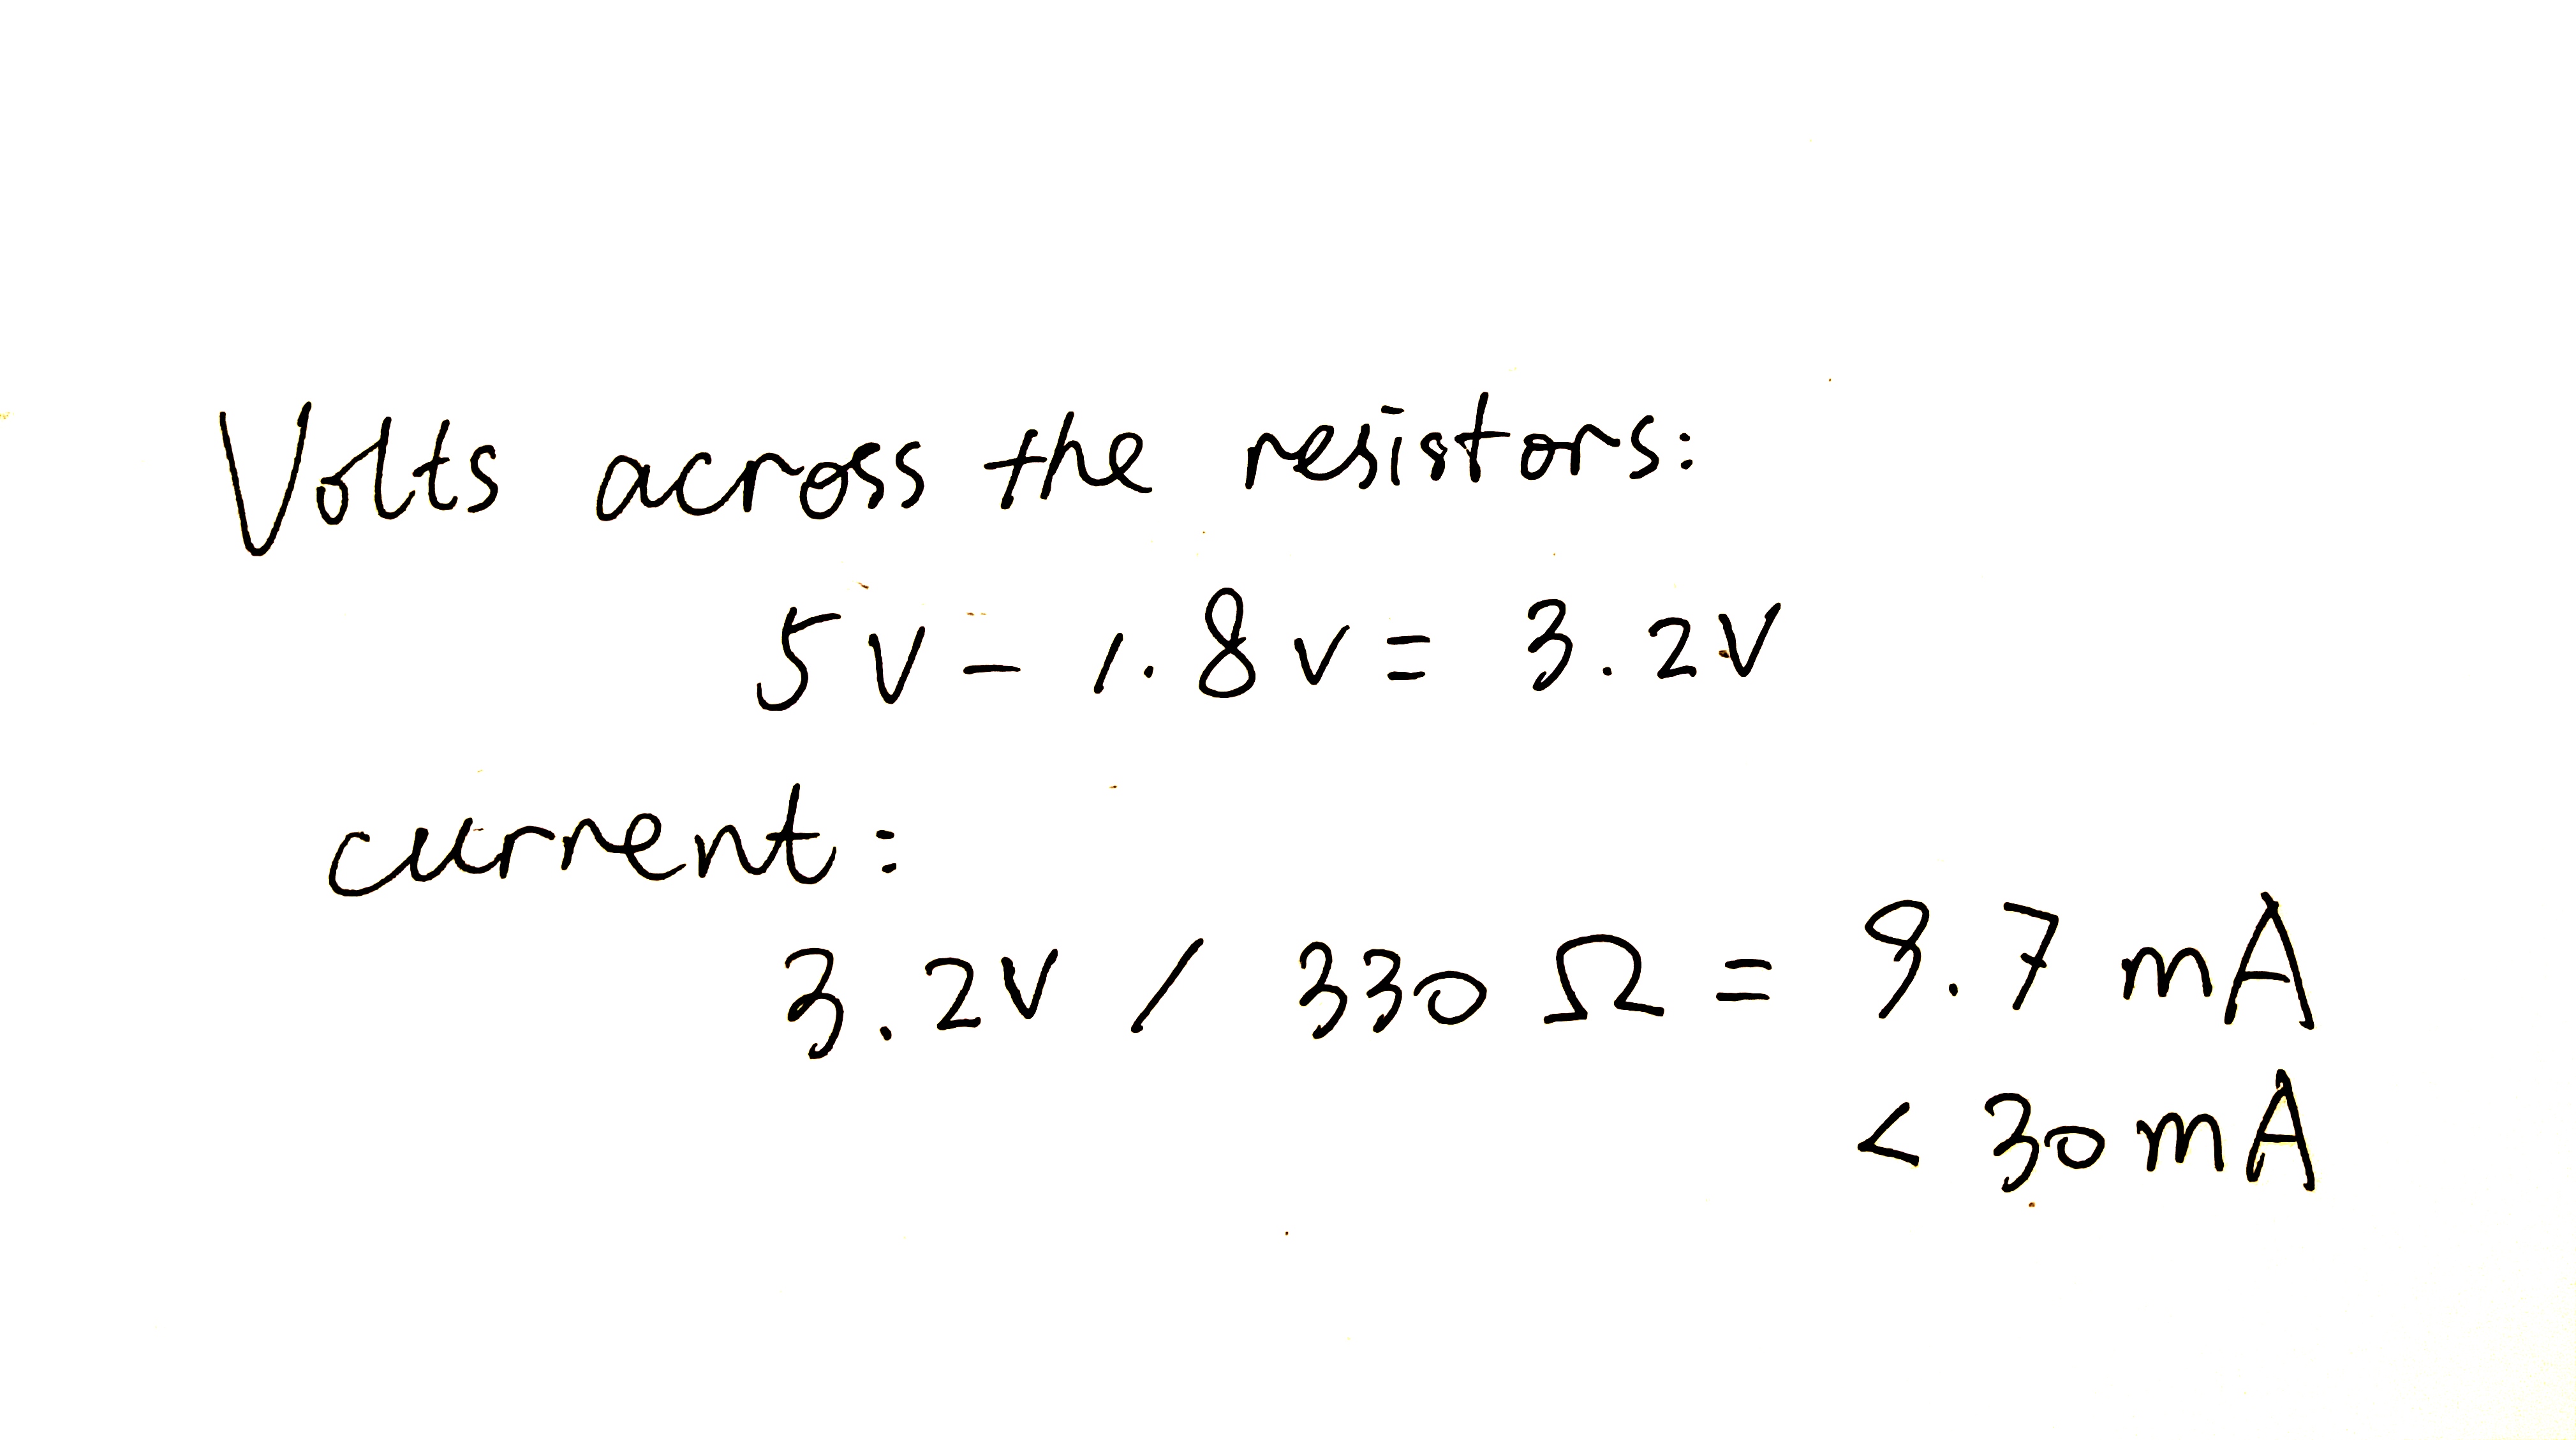 Volts across the resistors:
5V - 1.8V = 3.2V
current:
3.2V / 330 Ω = 9.7 mA
< 30mA